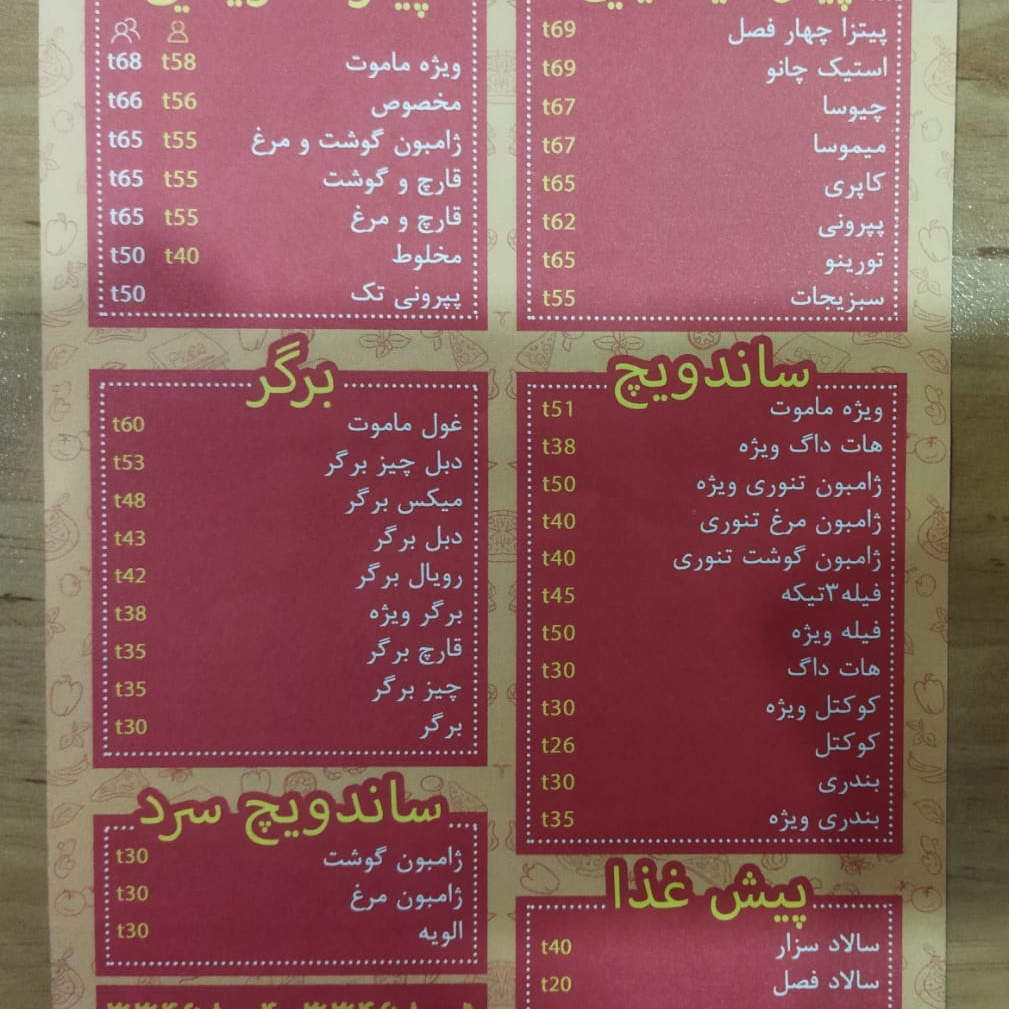 پیتزا چهار فصل t69
استیک چانو t69
چیوسا t67
میموسا t67
کاپری t65
پپرونی t62
تورینو t65
سبزیجات t55
ویژه ماموت t58 t68
مخصوص t56 t66
ژامبون گوشت و مرغ t55 t65
قارچ و گوشت t55 t65
قارچ و مرغ t55 t65
مخلوط t40 t50
پپرونی تک t50
ساندویچ
ویژه ماموت t51
هات داگ ویژه t38
ژامبون تنوری ویژه t50
ژامبون مرغ تنوری t40
ژامبون گوشت تنوری t40
فیله۳تیکه t45
فیله ویژه t50
هات داگ t30
کوکتل ویژه t30
کوکتل t26
بندری t30
بندری ویژه t35
برگر
غول ماموت t60
دبل چیز برگر t53
میکس برگر t48
دبل برگر t43
رویال برگر t42
برگر ویژه t38
قارچ برگر t35
چیز برگر t35
برگر t30
پیش غذا
سالاد سزار t40
سالاد فصل t20
ساندویچ سرد
ژامبون گوشت t30
ژامبون مرغ t30
الویه t30